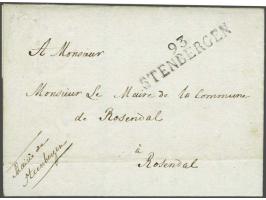 93
STENBERGEN
A Monsieur
Monsieur Le Maire de la Commune
de Rosendal
à
Rosendal
Mairie de
Steenbergen